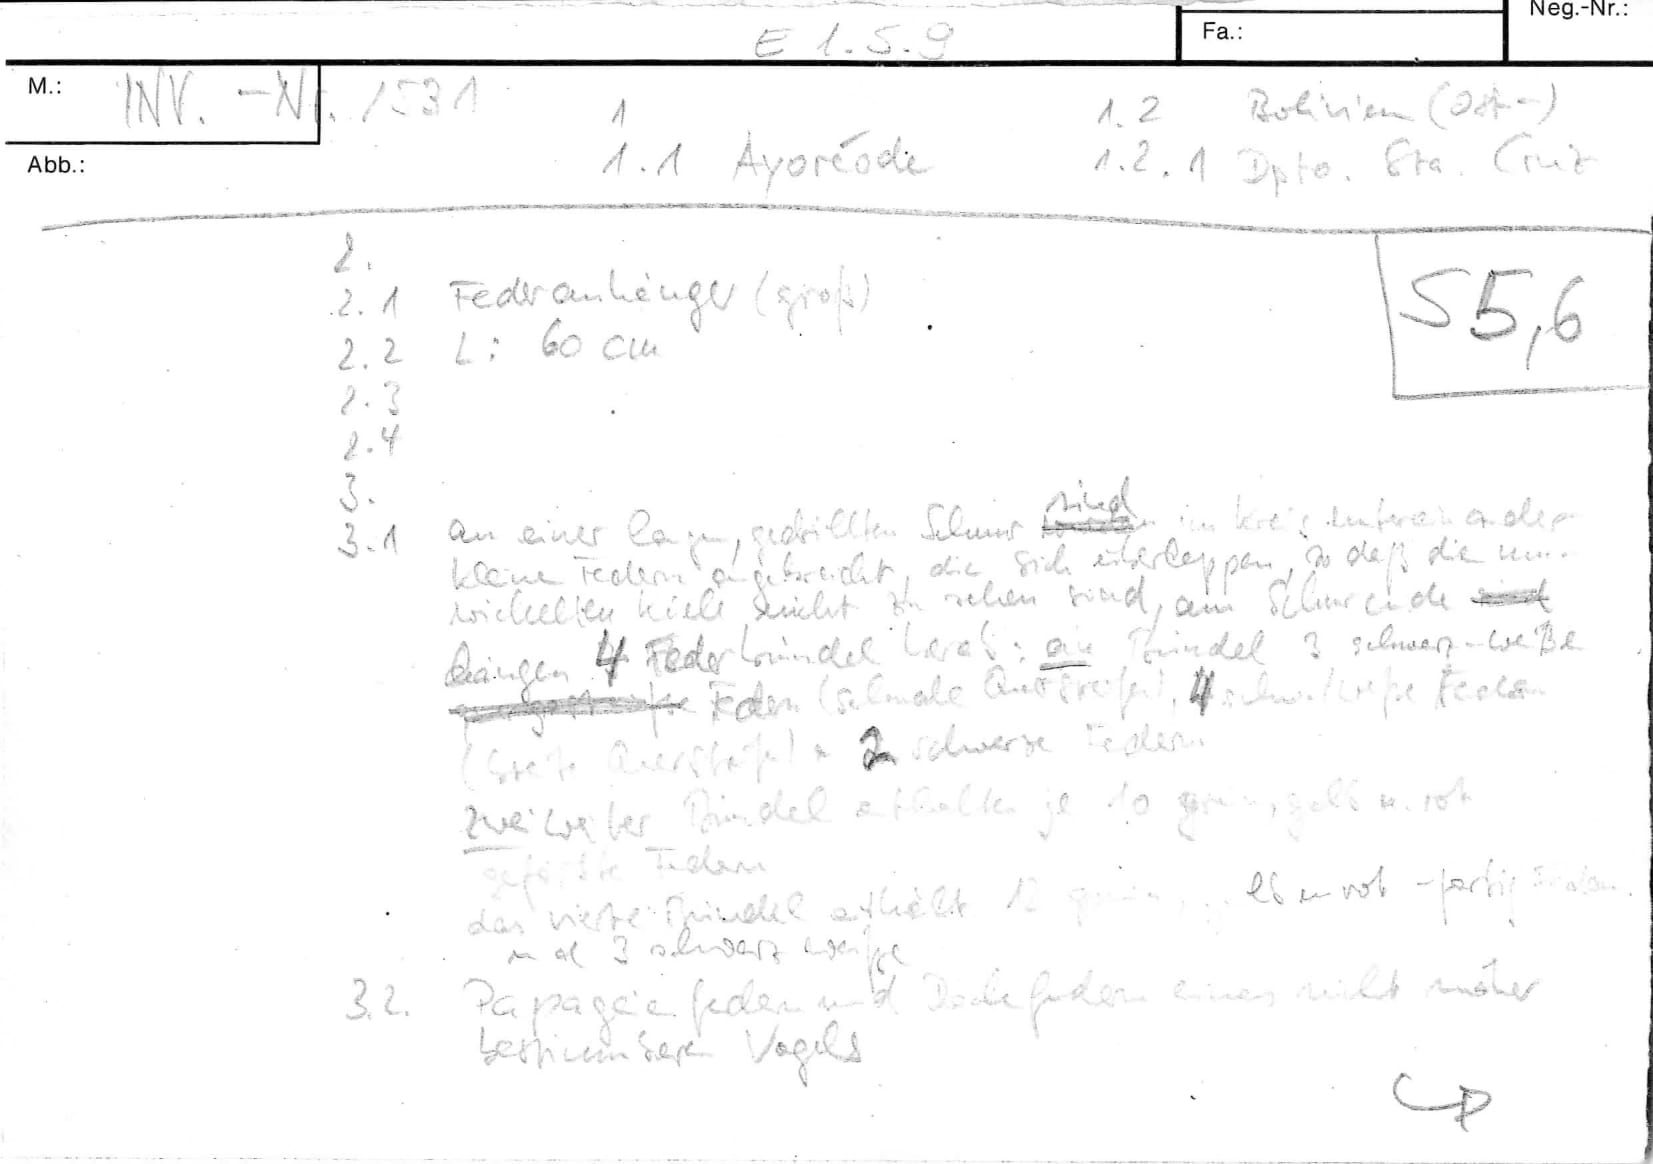 Neg.-Nr.:
E 1.5.9
Fa.:
M.: INV.-Nr. 1531
1
1.2 Bolivien (Ost-)
Abb.:
1.1 Ayoréode
1.2.1 Dpto. Sta. Cruz
2.
2.1 Federanhänger (groß)
55,6
2.2 L: 60 cm
2.3
2.4
3.
3.1 an einer langen, gedrillten Schnur sind im Kreis untereinander
kleine Federn angebracht, die sich überlappen, so daß die um-
wickelten Kiele nicht zu sehen sind, am Schnurende
hängen 4 Federbündel herab: ein Bündel 3 schwarz-weiße
Federn (schmale Querstreifen), 4 schw./weiße Federn
(breite Querstreifen) u. 2 schwarze Federn
zwei weitere Bündel enthalten je 10 grün, gelb u. rot
gefärbte Federn
das vierte Bündel enthält 12 grün, gelb u rot -farbige Federn
und 3 schwarz weiße
3.2. Papageienfedern und Deckfedern eines nicht näher
bestimmbaren Vogels